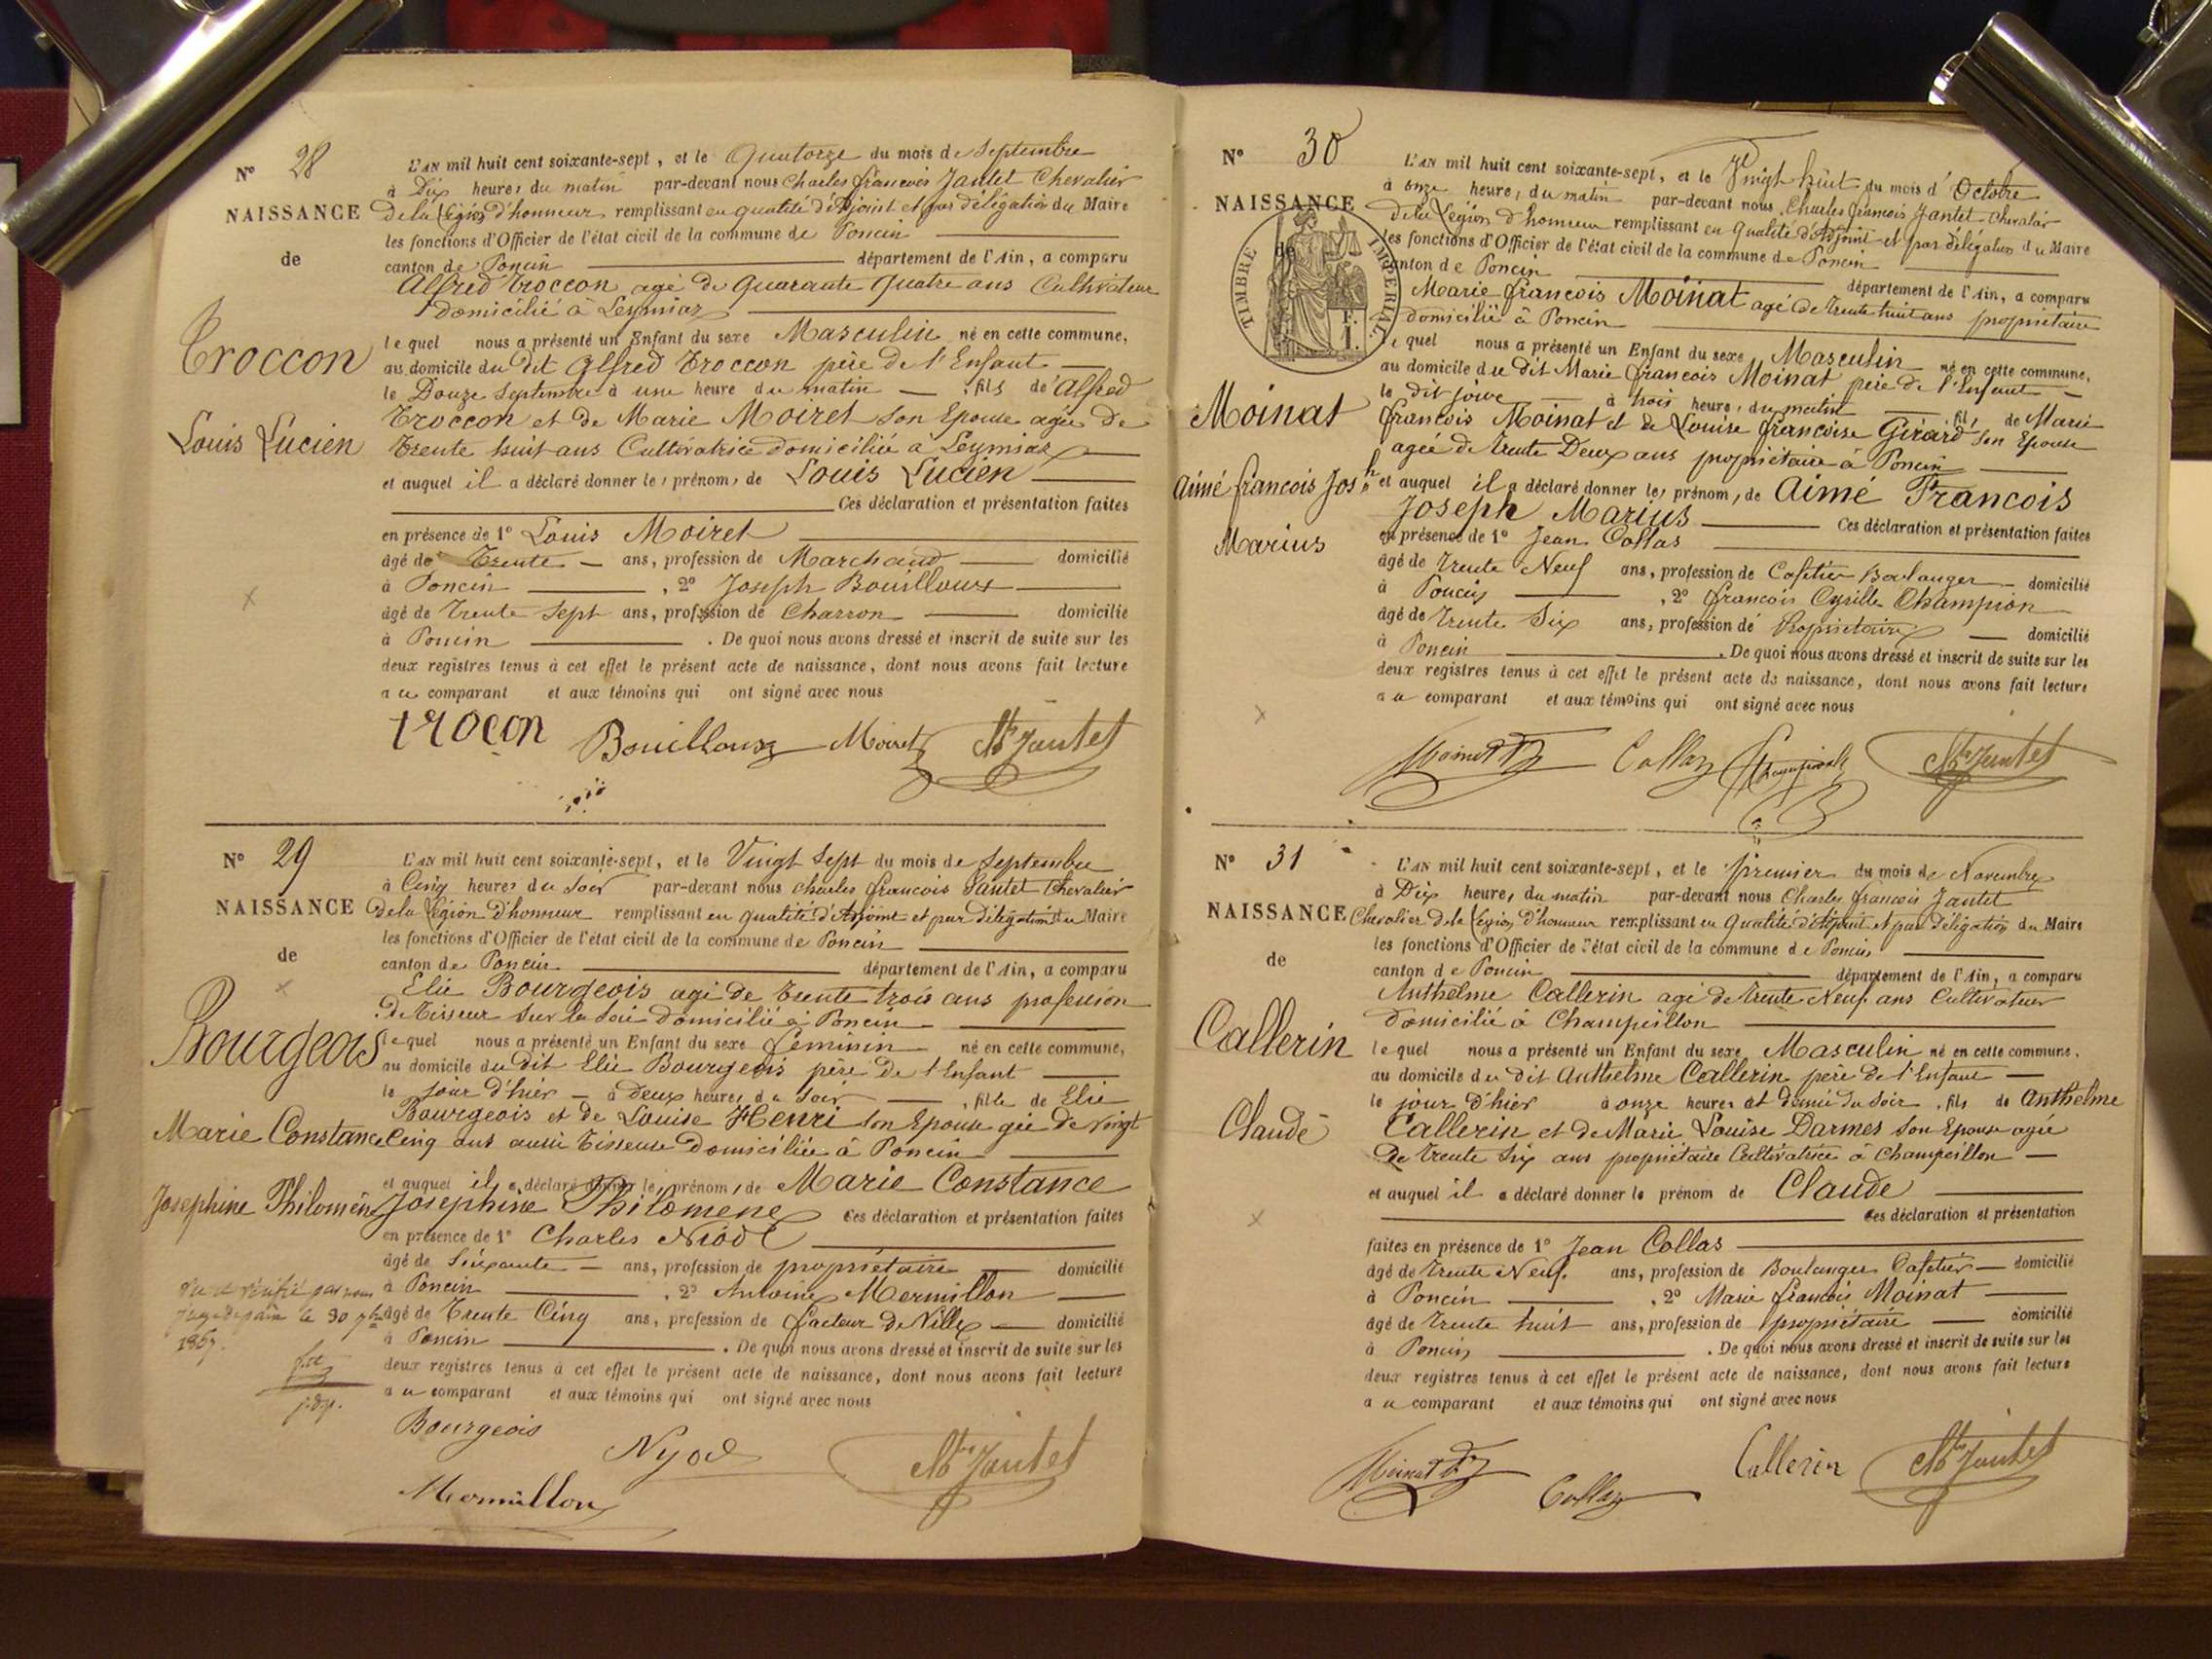 N° 28
NAISSANCE
de
Troccon
Louis Lucien
L'AN mil huit cent soixante-sept, et le Quatorze du mois de Septembre
à Dix heures du matin par-devant nous Charles francois Jantet Chevalier
de la Légion d'honneur remplissant en qualité d'Adjoint et par délégation du Maire
les fonctions d'Officier de l'état civil de la commune de Poncin
canton de Poncin département de l'Ain, a comparu
Alfred Troccon agé de Quarante Quatre ans Cultivateur
domicilié à Leymiaz
lequel nous a présenté un Enfant du sexe Masculin né en cette commune,
au domicile du dit Alfred Troccon père de l'Enfant
le Douze Septembre à une heure du matin , fils de Alfred
Troccon et de Marie Moiret son Epouse agée de
Trente huit ans Cultivatrice domiciliée à Leymiaz
et auquel il a déclaré donner les prénoms de Louis Lucien
Ces déclaration et présentation faites
en présence de 1° Louis Moiret
âgé de Trente ans, profession de Marchand domicilié
à Poncin , 2° Joseph Bouilloux
âgé de Trente Sept ans, profession de Charron domicilié
à Poncin . De quoi nous avons dressé et inscrit de suite sur les
deux registres tenus à cet effet le présent acte de naissance, dont nous avons fait lecture
au comparant et aux témoins qui ont signé avec nous
trocon Bouilloux Moiret Jantet
N° 29
NAISSANCE
de
Bourgeois
Marie Constance
Josephine Philomène
L'AN mil huit cent soixante-sept, et le Vingt Sept du mois de Septembre
à Cinq heures du Soir par-devant nous Charles francois Jantet Chevalier
de la Légion d'honneur remplissant en qualité d'Adjoint et par délégation du Maire
les fonctions d'Officier de l'état civil de la commune de Poncin
canton de Poncin département de l'Ain, a comparu
Elie Bourgeois agé de Trente trois ans profession
de Tisseur Sur la Soie domicilié à Poncin
lequel nous a présenté un Enfant du sexe féminin né en cette commune,
au domicile du dit Elie Bourgeois père de l'Enfant
le jour d'hier à deux heures du Soir , fille de Elie
Bourgeois et de Louise Henri Son Epouse gée de vingt
Cinq ans aussi Tisseuse domiciliée à Poncin
et auquel il a déclaré donner les prénoms de Marie Constance
Josephine Philomene Ces déclaration et présentation faites
en présence de 1° Charles Niod
âgé de Soixante ans, profession de propriétaire domicilié
à Poncin , 2° Antoine Mermillon
âgé de Trente Cinq ans, profession de facteur de Ville domicilié
à Poncin . De quoi nous avons dressé et inscrit de suite sur les
deux registres tenus à cet effet le présent acte de naissance, dont nous avons fait lecture
au comparant et aux témoins qui ont signé avec nous
Vu et vérifié par nous
juge de paix le 30 7bre
1867.
j.d.p.
Bourgeois Nyod Jantet
Mermillon
N° 30
NAISSANCE
de
TIMBRE IMPERIAL
Moinat
Aimé francois Josh
Marius
L'AN mil huit cent soixante-sept, et le Vingt huit du mois d'Octobre
à onze heures du matin par-devant nous Charles francois Jantet Chevalier
de la Légion d'honneur remplissant en Qualité d'Adjoint et par délégation du Maire
les fonctions d'Officier de l'état civil de la commune de Poncin
canton de Poncin département de l'Ain, a comparu
Marie francois Moinat agé de trente huit ans propriétaire
domicilié à Poncin
lequel nous a présenté un Enfant du sexe Masculin né en cette commune,
au domicile du dit Marie francois Moinat père de l'Enfant
le dit jour à trois heures du matin , fils de Marie
francois Moinat et de Louise francoise Girard Son Epouse
agée de trente Deux ans propriétaire à Poncin
et auquel il a déclaré donner les prénoms de Aimé Francois
Joseph Marius Ces déclaration et présentation faites
en présence de 1° Jean Collas
âgé de Trente Neuf ans, profession de Cafetier Boulanger domicilié
à Poncin , 2° francois Cyrille Champion
âgé de Trente Six ans, profession de Propriétaire domicilié
à Poncin . De quoi nous avons dressé et inscrit de suite sur les
deux registres tenus à cet effet le présent acte de naissance, dont nous avons fait lecture
au comparant et aux témoins qui ont signé avec nous
Moinat Collas Champion Jantet
N° 31
NAISSANCE
de
Callerin
Claude
L'AN mil huit cent soixante-sept, et le premier du mois de Novembre
à Dix heures du matin par-devant nous Charles francois Jantet
Chevalier de la Légion d'honneur remplissant en Qualité d'Adjoint et par délégation du Maire
les fonctions d'Officier de l'état civil de la commune de Poncin
canton de Poncin département de l'Ain, a comparu
Anthelme Callerin agé de trente Neuf ans Cultivateur
domicilié à Champeillon
lequel nous a présenté un Enfant du sexe Masculin né en cette commune,
au domicile du dit Anthelme Callerin père de l'Enfant
le jour d'hier à onze heures et demie du Soir , fils de Anthelme
Callerin et de Marie Louise Darmes Son Epouse agée
de trente Six ans propriétaire Cultivatrice à Champeillon
et auquel il a déclaré donner le prénom de Claude
Ces déclaration et présentation
faites en présence de 1° Jean Collas
âgé de Trente Neuf ans, profession de Boulanger Cafetier domicilié
à Poncin , 2° Marie francois Moinat
âgé de Trente huit ans, profession de propriétaire domicilié
à Poncin . De quoi nous avons dressé et inscrit de suite sur les
deux registres tenus à cet effet le présent acte de naissance, dont nous avons fait lecture
au comparant et aux témoins qui ont signé avec nous
Moinat Collas Callerin Jantet